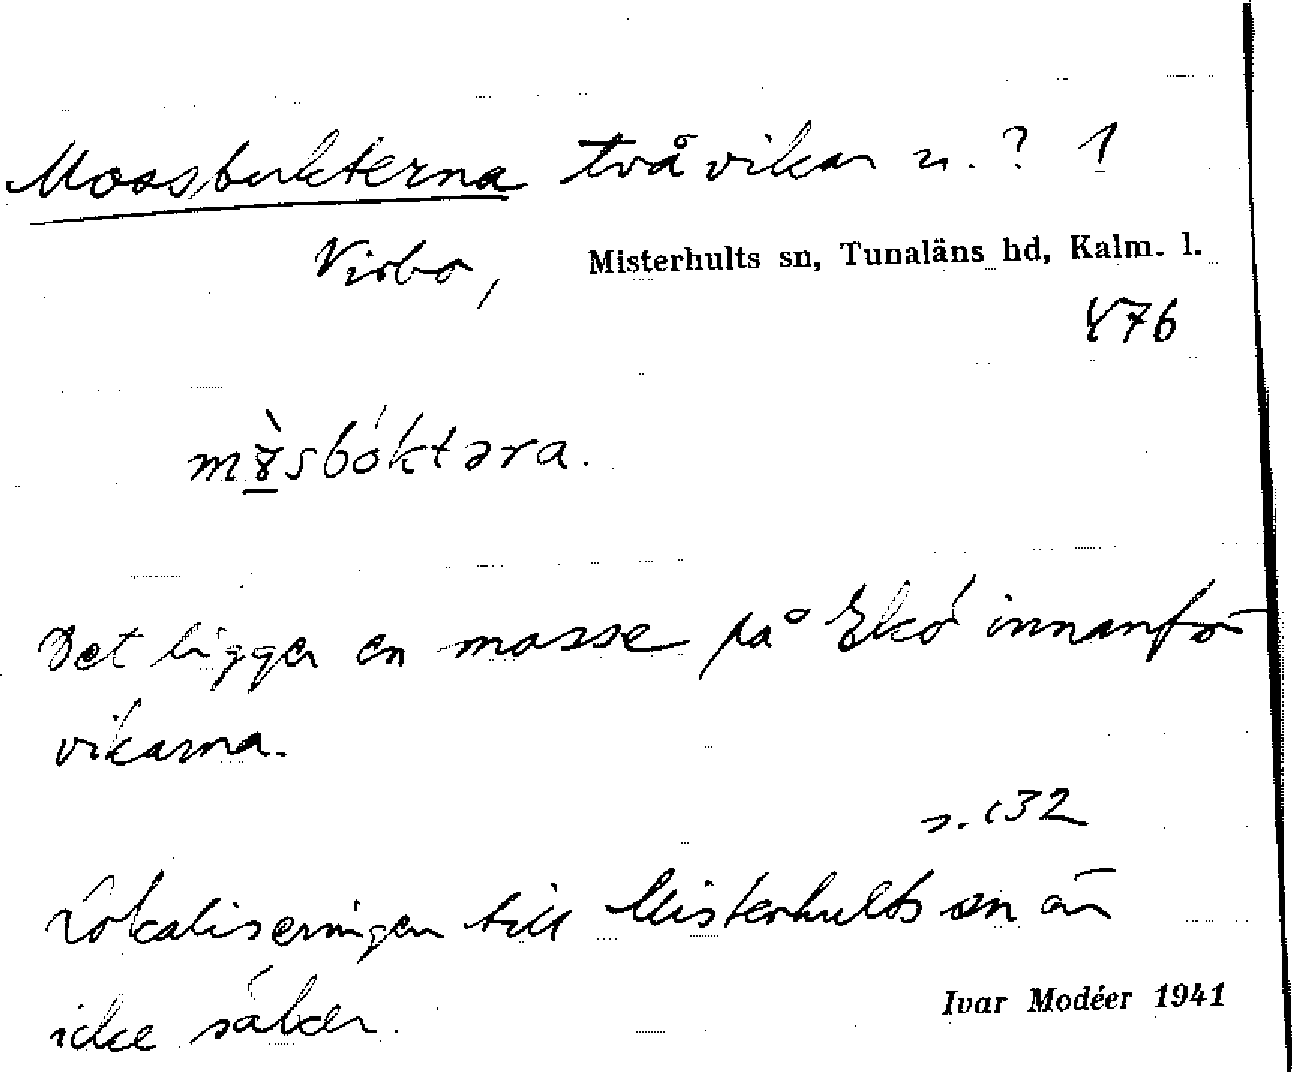 Mossbukterna två vikar n. ? 1
Virbo, Misterhults sn, Tunaläns hd, Kalm. l.
476
Det ligger en mosse på Ekö innanför
vikarna.
s. 132
Lokaliseringen till Misterhults sn är
icke säker.
Ivar Modéer 1941